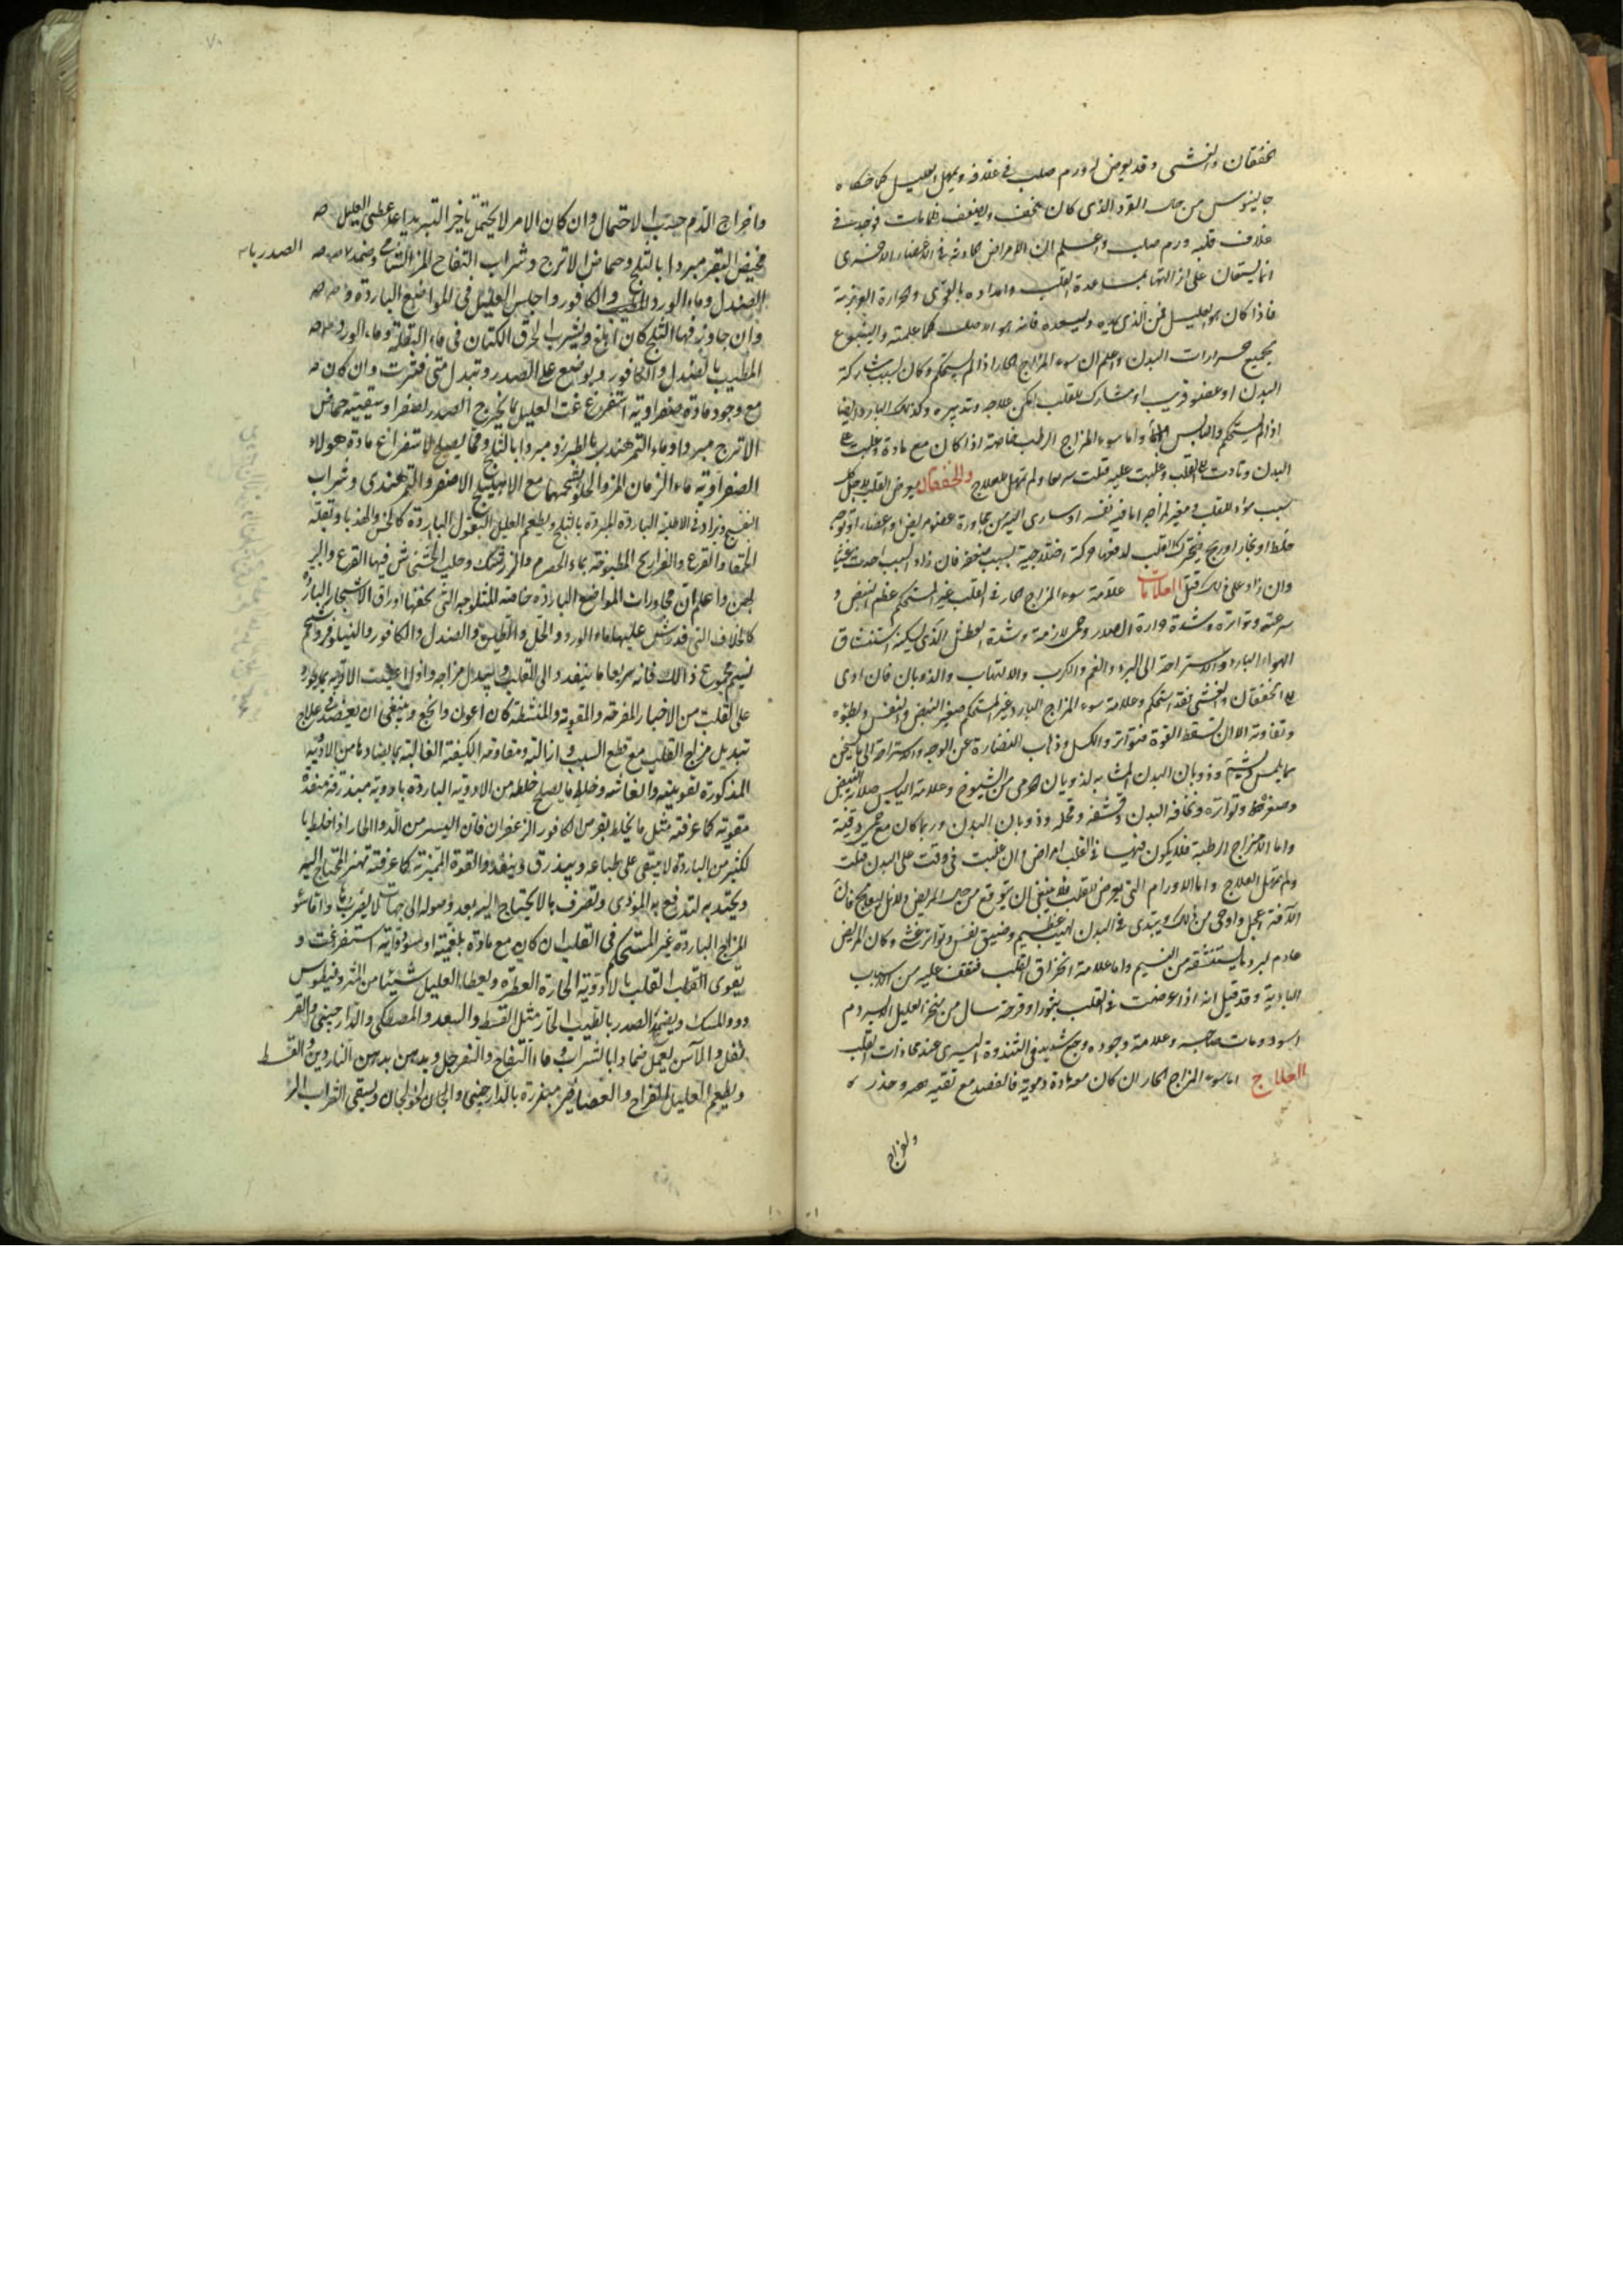 الخفقان والغشى وقد يعرض له ورم صلب فى غلافه ويمهل العليل كما حكاه
جالينوس من حال القرد الذى كان ينحف ويضعف فلما مات فوجد فى
غلاف قلبه ورم صلب واعلم ان الامراض الحادثة فى الاعضاء الاخرى
انما يستعان على ازالتها بمساعدة القلب وامداده بالقوى والحرارة الغريزية
فاذا كان هو العليل فمن الذى يمده ويسعده فانه هو الاصل كما علمته والينبوع
لجميع حرارات البدن واعلم ان سوء المزاج الحار اذا لم يستحكم وكان بسبب مشاركة
البدن او عضو قريب او مشارك للقلب امكن علاجه وتدبيره وكذلك البارد ايضا
اذا لم يستحكم واليابس ايضا واما سوء المزاج الرطب خاصة اذا كان مع مادة وغلبت على
البدن وتادت الى القلب وغلبت عليه قتلت سريعا ولم تمهل للعلاج والخفقان يعرض للقلب لاجل كل
سبب مؤذ للقلب مغير لمزاجه اما فيه نفسه او سارى اليه من مجاورة عضو مريض او اعضاء او توجه
خلط او بخار او ريح فيتحرك القلب لدفعها حركة اختلاجية بسبب فان زاد السبب احدث غشيا
وان زاد على ذلك قتل العلامات علامة سوء المزاج الحار فى القلب غير المستحكم عظم النبض و
سرعته وتواتره وشدة حرارة الصدر وحمى لازمة وشدة العطش الذى يسكنه استنشاق
الهواء البارد والاستراحة الى البرد والغم والكرب والالتهاب والذوبان فان ادى
الى الخفقان والغشى فقد استحكم وعلامة سوء المزاج البارد غير المستحكم صغر النبض والنفس وبطؤه
وتفاوته الا ان تسقط القوة فتواتر والكسل وذهاب النضارة عن الوجه والاستراحة الى ما يسخن
مما يلمس ويشم وذوبان البدن المشابه لذوبان الهرمى من الشيوخ وعلامة اليابس صلابة النبض
وصغره وتواتره ونحافة البدن وقشفه وقحله وذوبان البدن وربما كان مع حمى دقية
واما الامزاج الرطبة فلا يكون فيها فى القلب امراض وان غلبت فى وقت على البدن قتلت
ولم تمهل العلاج واما الاورام التى يعرض للقلب فلا ينبغى ان يتوقع من حال المريض دلائل ليعالج فان
الآفة اعجل واوحى من ذلك ويبتدى فى البدن لهيب عظيم وضيق نفس وتواتر غشى وكان المريض
عادم لبرد ما يستنشقه من النسيم واما علامة انخراق القلب فتقف عليه من الاسباب
البادية وقد قيل انه اذا عرضت فى القلب بثور او قرحة سال من منخر العليل الايسر دم
اسود ومات صاحبه وعلامة وجوده وجع شديد فى الثندوة اليسرى عند محاذات القلب
العلاج اما سوء المزاج الحار ان كان معه مادة دموية فالفصد مع تقيه وحذر
واخراج
واخراج الدم حسب الاحتمال وان كان الامر لا يحتمل تاخير التبريد اعطى العليل
مخيض البقر مبردا بالثلج وحماض الاترج وشراب التفاح المز الشامى وضمد الصدر بماء
الصندل وماء الورد والكافور واجلس العليل فى المواضع الباردة
وان جاوز فيها الثلج كان ابلغ ويشرب الخرق الكتان فى ماء البقلة وماء الورد
المطيب بالصندل والكافور ويوضع على الصدر وتبدل متى فترت وان كان
مع وجود مادة صفراوية استفرغت العليل بما يخرج الصفراء وسقيته حماض
الاترج مبردا وماء التمر هندى بالطبرزد مبردا بالثلج ومما يصلح لاستفراغ مادة هولاء
الصفراوية ماء الرمان المز والحلو بشحمهما مع الاهليلج الاصفر والتمر هندى وشراب
البنفسج ويزاد فى الاطلية الباردة المبردة بالثلج ويطعم العليل البقول الباردة كالخس والهندبا وبقلة
الحمقا والقرع والفراريج المطبوخة بماء الحصرم والزرشك وحليب الخشخاش فيها القرع والبر
لجين واعلم ان مجاورات المواضع الباردة خاصة المثلوجة التى تحفها اوراق الاشجار الباردة
كالخلاف التى قد رش عليها ماء الورد والخل والصندل والكافور والنيلوفر وشم
نسيم مجموع ذلك فانه سريعا ما ينفد الى القلب ويبدل مزاجه واول اعينت الادوية بما يورد
على القلب من الاخبار المفرحة والمقوية والمنشطة كان اعون وانجع وينبغى ان يقصد فى علاج
تبديل مزاج القلب مع قطع السبب وازالته ومقاومة الكيفية الغالبة بما يضادها من الادوية
المذكورة تقويته وانعاشه وخلط ما يصلح خلطه من الادوية الباردة بادوية مبذرقة منفذة
مقوية كما عرفته مثل ما يخلط بقرص الكافور الزعفران فان اليسير من الدوا الحار اذا خلط با
لكثير من الباردة لا يبقى على طباعه ويبذرق وينفذ والقوة المميزة كما عرفته تميز المحتاج اليه
ويجتذبه لتدفع به المؤذى وتصرف ما لا يحتاج اليه بعد وصوله الى جهات لا يضر بها واما سؤ
المزاج الباردة غير المستحكم فى القلب ان كان مع مادة بلغمية او سوداوية استفرغت و
يقوى القلب بالادوية الحارة العطرة ويعطا العليل شيئا من المثروديطوس
ودوا المسك ويضمد الصدر بالطيب الحار مثل القسط والسعد والمصطكى والدارصينى والقر
نفل والآس يعمل ضمادا بالشراب وماء التفاح والسفرجل ويدهن بدهن الناردين والقسط
ويطعم العليل الفراخ والعصافير مبزرة بالدارصينى والخولنجان ويسقى الشراب المر